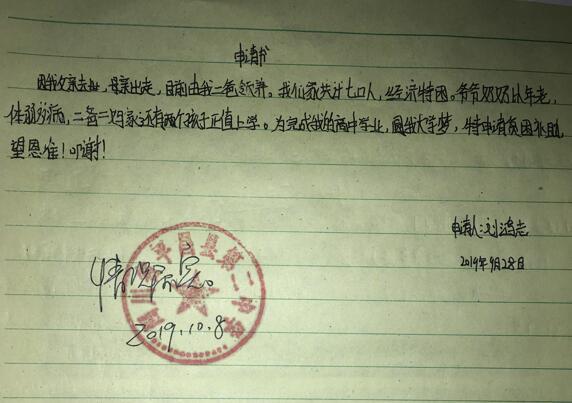 申请书
因我父亲去世,母亲出走,目前由我二爸抚养。我们家共计七口人,经济特困。爷爷奶奶以年老,
体弱多病,二爸二妈家还有两个孩子正值上学。为完成我的高中学业,圆我大学梦,特申请贫困补助,
望恩准!叩谢!
申请人:刘鸿志
2019年9月28日
四川省平昌县第二中学
情况属实。
2019.10.8